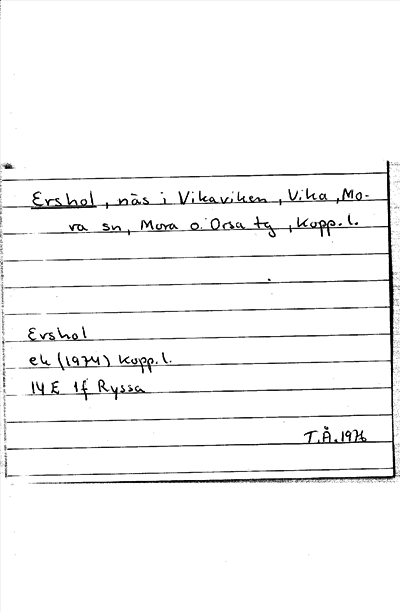 Ershol, näs i Vikaviken, Vika, Mo-
ra sn, Mora o. Orsa tg, Kopp. l.
Ershol
ek (1974) Kopp. l.
14 E 1f Ryssa
T.Å. 1976